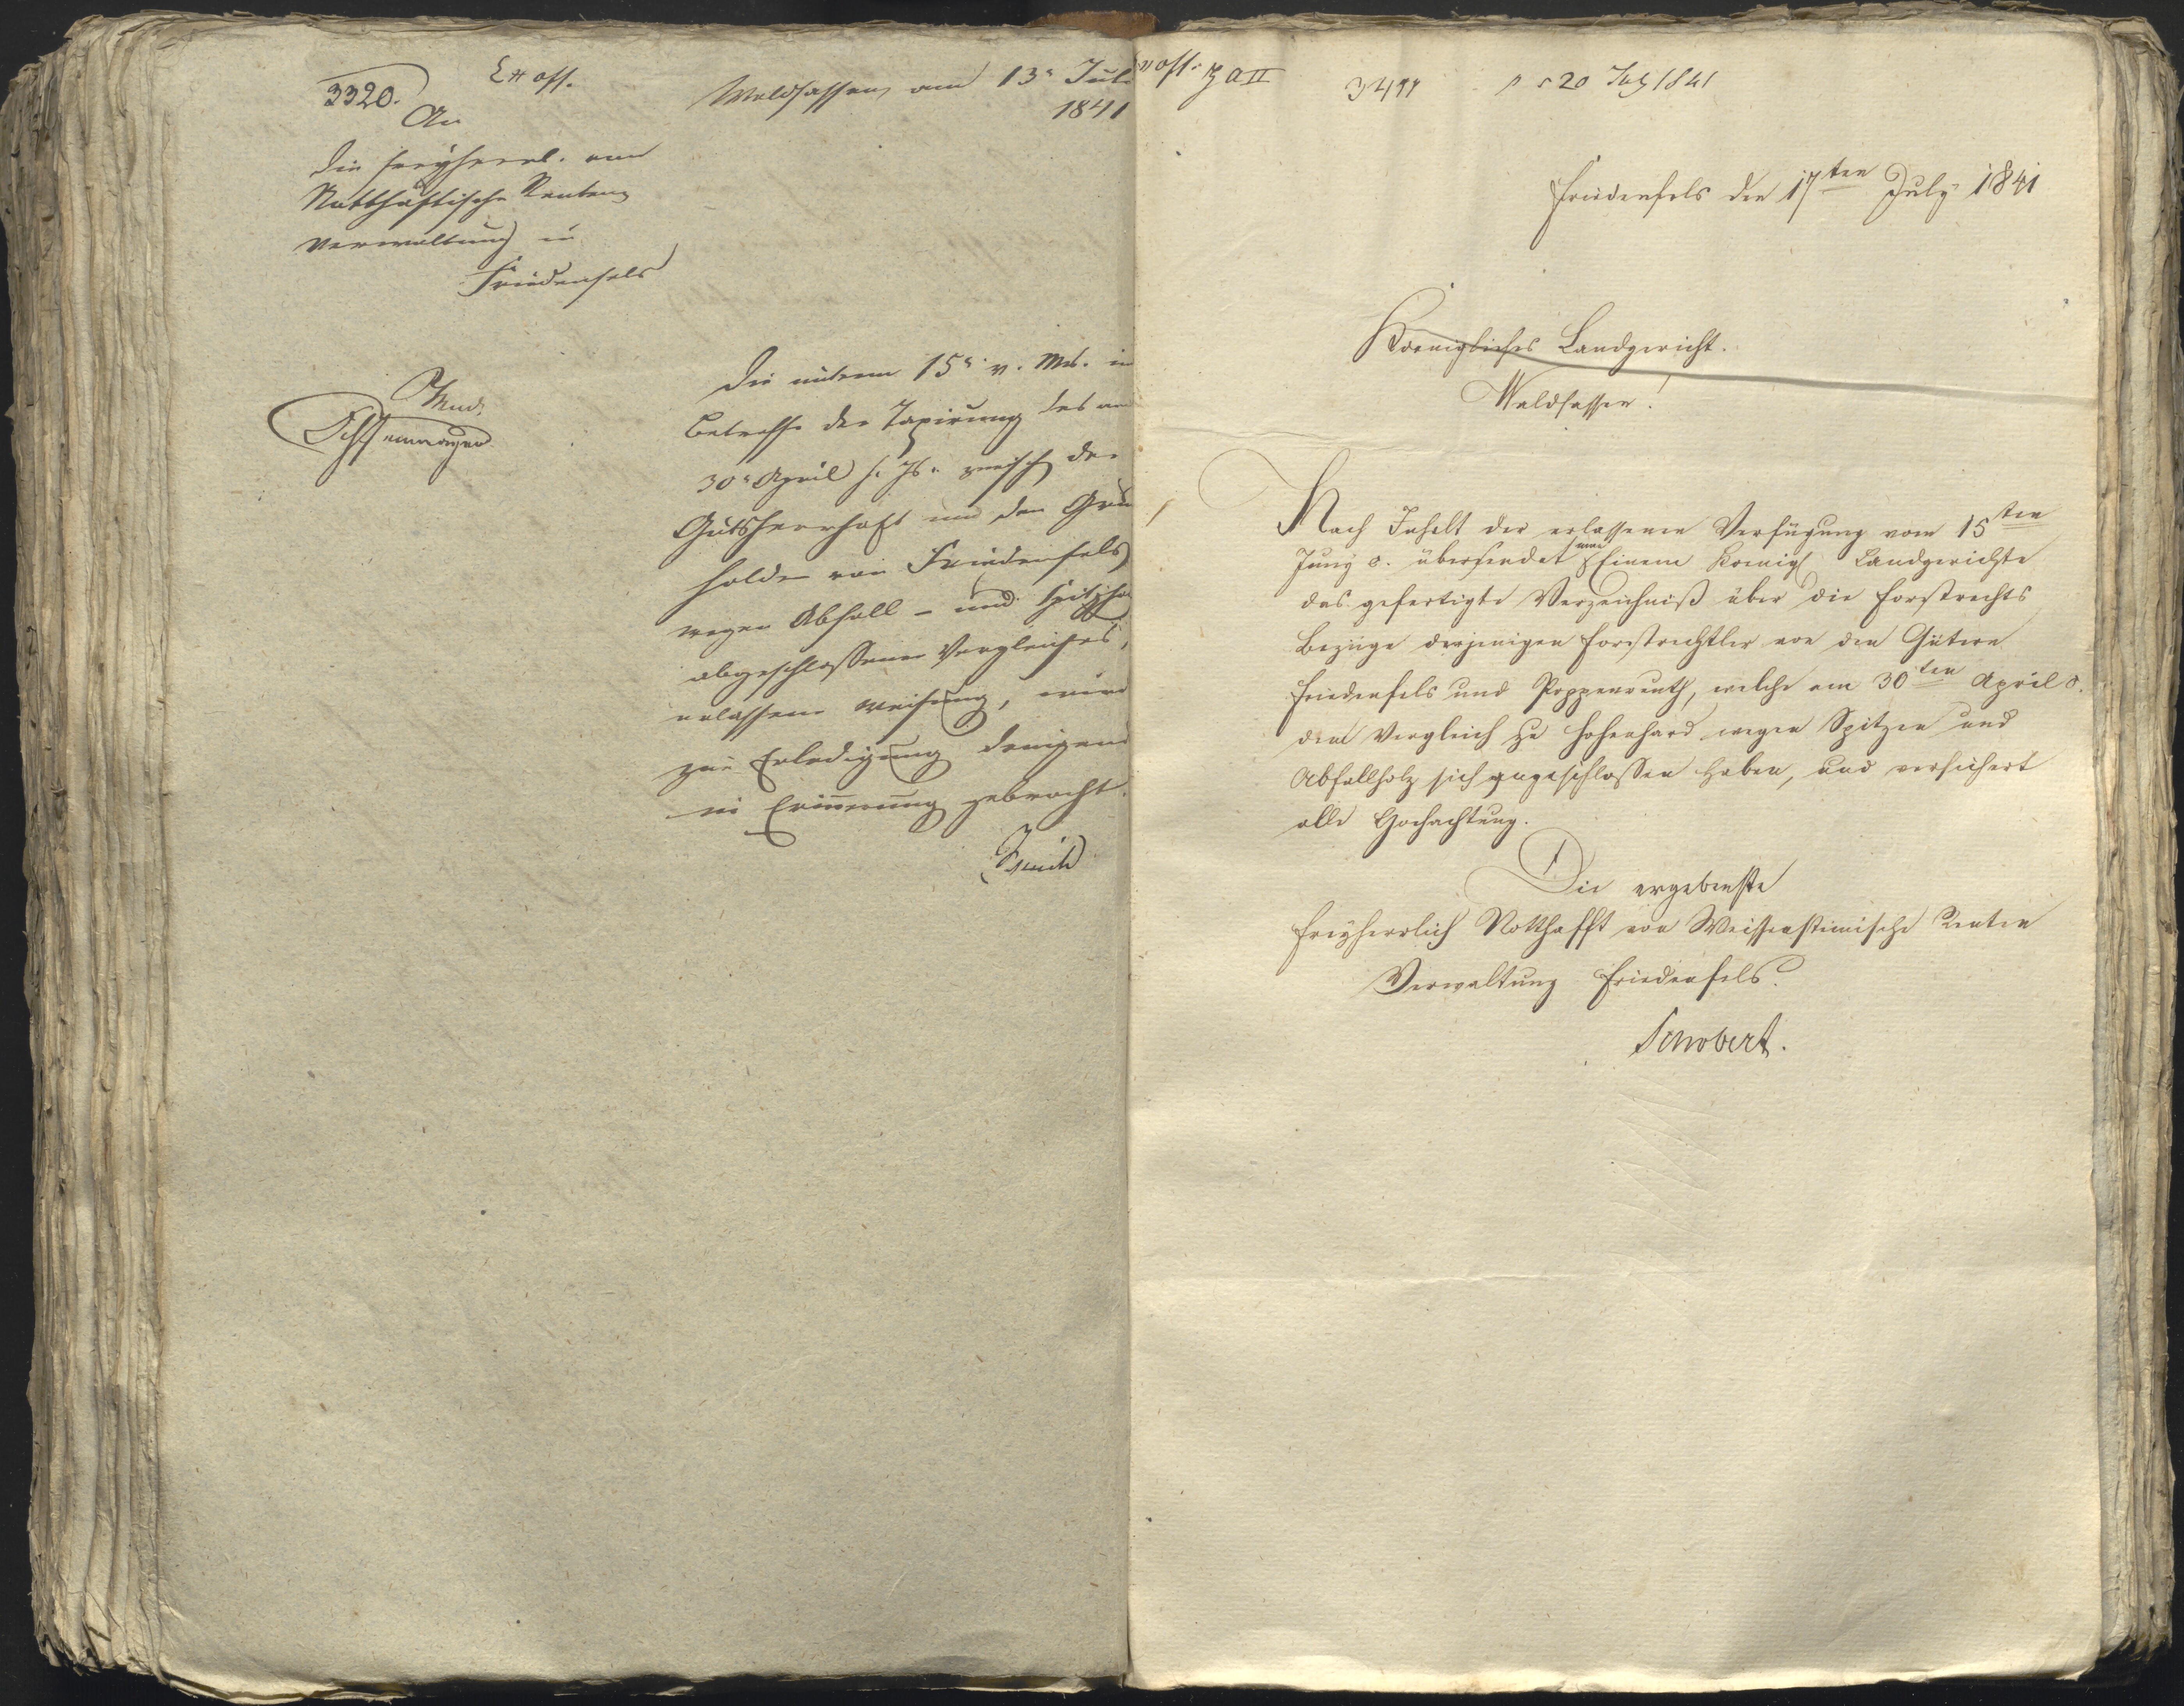 3320.
Ex off.
Waldsassen am 13n Juli
1841
An
die freyherrl. von
Notthaftische Renten
verwaltung in
Friedenfels
Mund.
Die unterm 15n v. Mts. in
Betreff der Taxirung des am
30n April h. Js. zwisch der
Gutsherrschaft und den Grund
holden von Friedenfels
wegen Abfall- und Spitzholz
abgeschlossenen Vergleiches,
erlassene Weisung, wird
zur Erledigung
in Erinnerung gebracht.
off.
3499
20 July 1841
Friedenfels den 17ten July 1841
Koenigliches Landgericht.
Waldsassen!
Nach Inhalt der erlassenen Verfügung vom 15ten
Juny c. übersendet man Einem Koenigl Landgerichte
das gefertigte Verzeichniß über die Forstrechts
Bezüge derjenigen Forstrechtler von den Gütern
Friedenfels und Poppenreuth, welche am 30ten April c.
dem Vergleich zu Hohenhard wegen Spitzen und
Abfallholz sich angeschlossen haben, und versichert
alle Hochachtung.
Die ergebenste
Freyherrlich Notthafft von Weissensteinische Renten
Verwaltung Friedenfels.
Schobert.